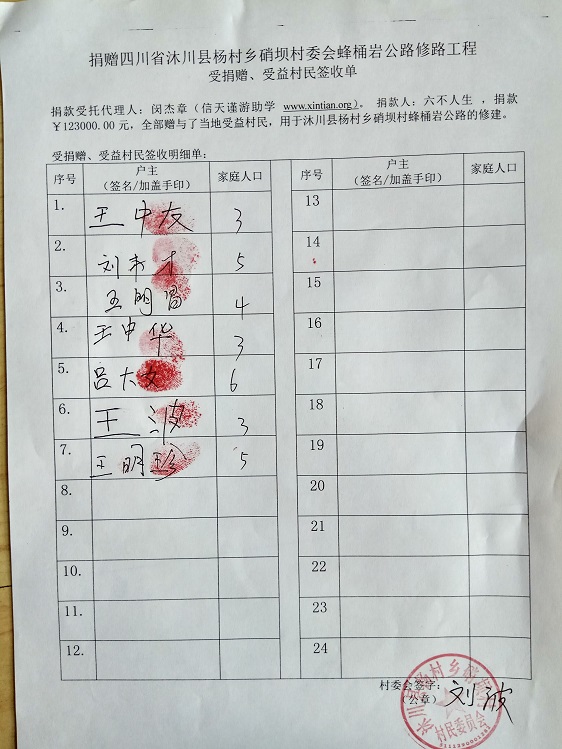 捐赠四川省沐川县杨村乡硝坝村委会蜂桶岩公路修路工程
受捐赠、受益村民签收单
捐款受托代理人：闵杰章（信天谨游助学 www.xintian.org）。 捐款人：六不人生 ，捐款
￥123000.00 元，全部赠与了当地受益村民，用于沐川县杨村乡硝坝村蜂桶岩公路的修建。
受捐赠、受益村民签收明细单：
序号 户主 家庭人口 序号 户主 家庭人口
（签名/加盖手印） （签名/加盖手印）
1. 王中友 3 13
2. 刘书才 5 14
3. 王明昌 4 15
4. 王中华 3 16
5. 吕大女 6 17
6. 王波 3 18
7. 王明珍 5 19
8. 20
9. 21
10. 22
11. 23
12. 24
村委会签字： 刘波
（公章）
村民委员会